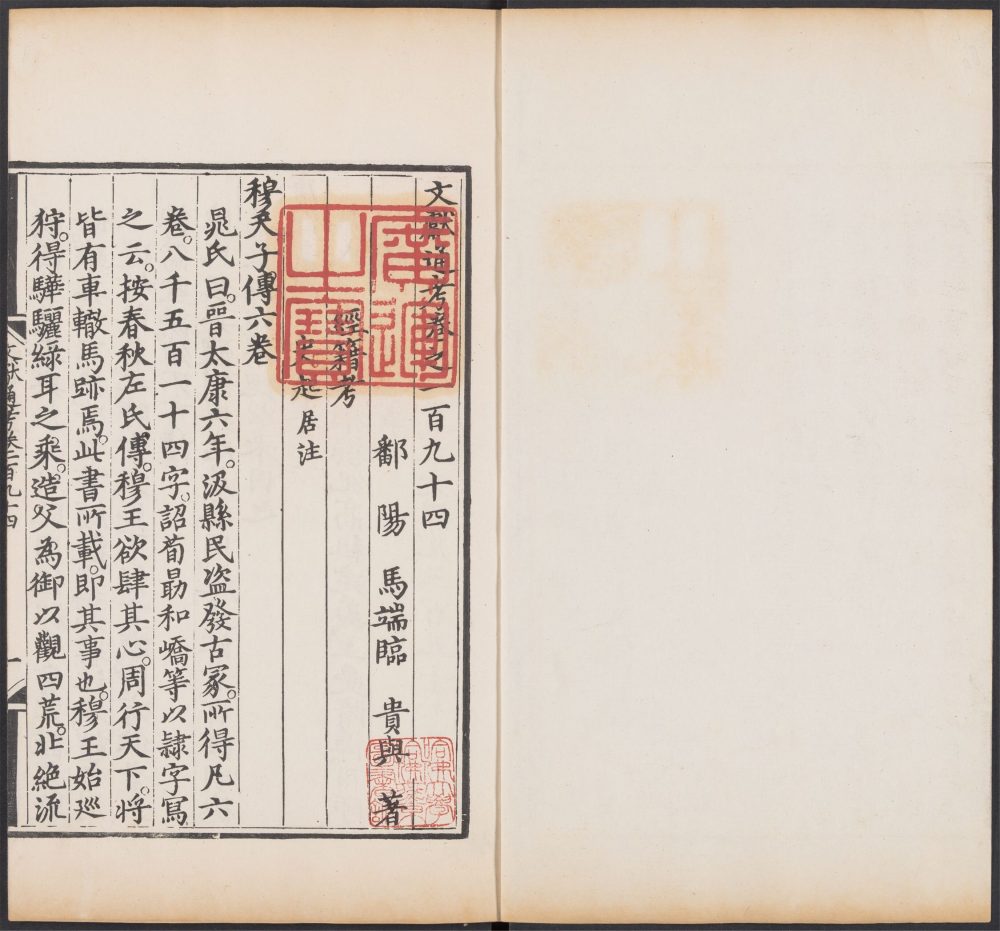 文獻通考卷之一百九十四
鄱陽馬端臨貴與著
經籍考
史 起居注
穆天子傳六卷
晁氏曰。晉太康六年。汲縣民盜發古冢。所得凡六
卷。八千五百一十四字。詔荀勗和嶠等以隸字寫
之云。按春秋左氏傳。穆王欲肆其心。周行天下。將
皆有車轍馬跡焉。此書所載。即其事也。穆王始巡
狩。得驊騮綠耳之乘。造父為御。以觀四荒。北絕流
文獻通考卷一百九十四
一